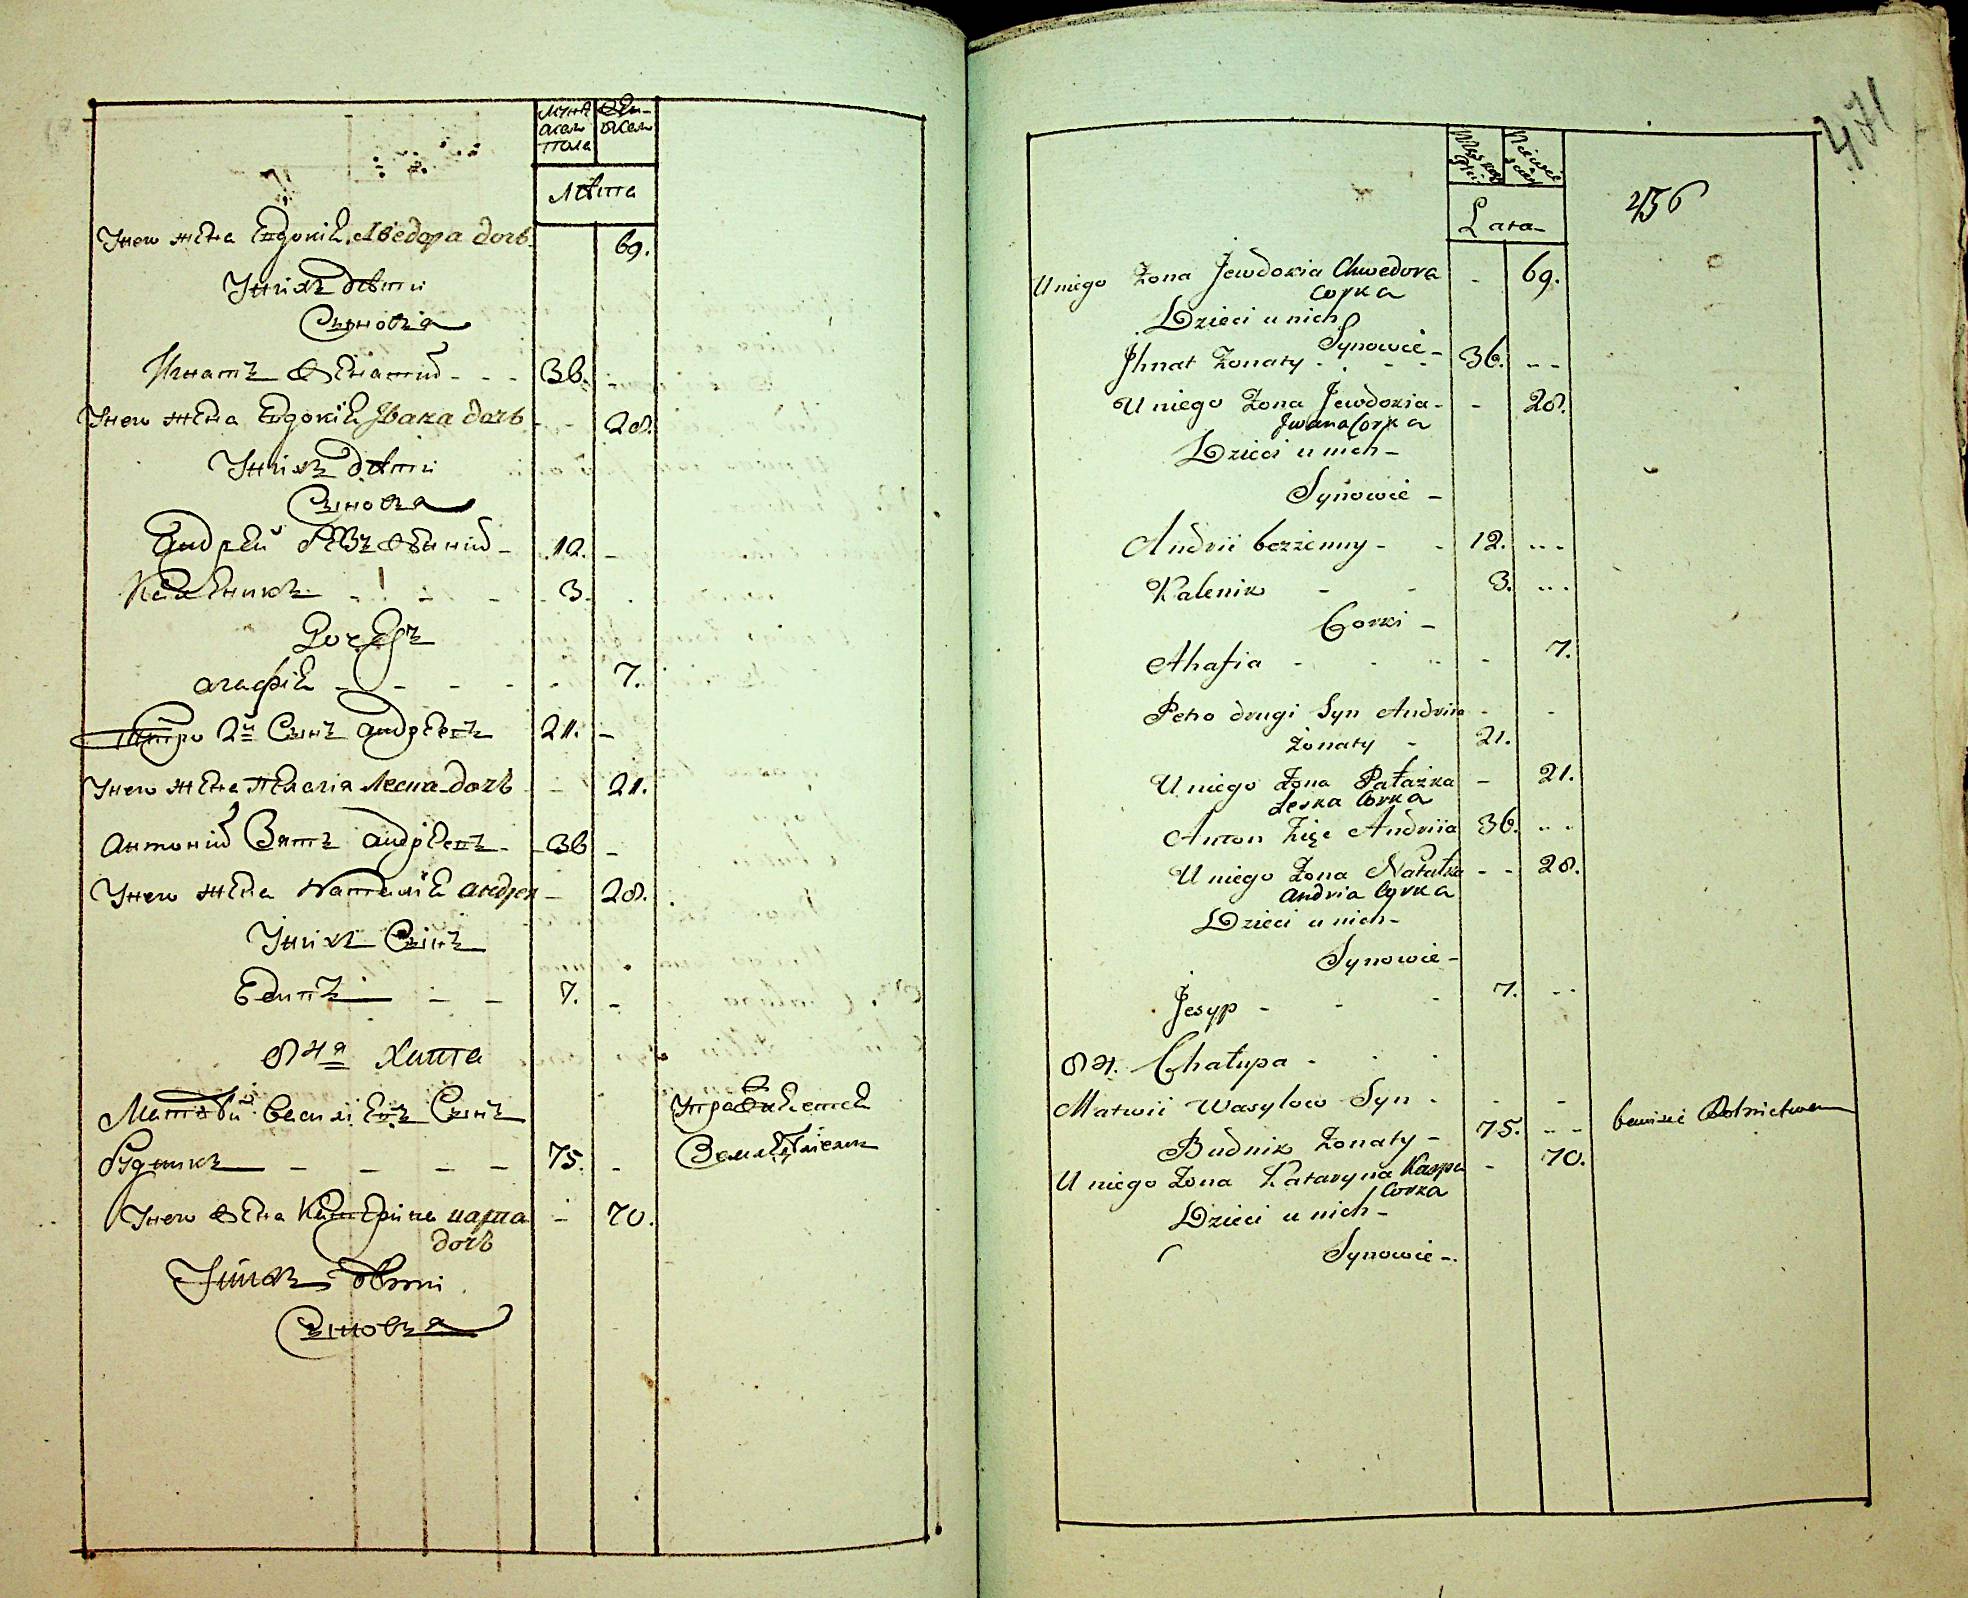 Мужеска пола
Женска
Лѣта
Унего жена Евдокія Хведора дочь 69.
Унихъ дѣти
Сыновья
Игнатъ женатій - - - 36. -
Унего жена Евдокія Ивана дочь - - 28.
Унихъ дѣти
Сыновья
Андрей безженній - 12. -
Каленикъ - - - 3. -
Дочерь
Агафія - - - - 7.
Петро 2й Сынъ Андреевъ 21. -
Унего жена Пелагія Леска дочь - 21.
Антоній Зять Андреевъ - 36 -
Унего жена Наталія Андрея - 28.
Унихъ Сынъ
Есипъ - - 7. -
84я Хата
Матвѣй Василіевъ Сынъ
Будникъ - - - - 75. -
Упражняется
Земледѣліемъ
Унего жена Катерина Карпа - 70.
дочь
Унихъ дѣти
Сыновья
471
Męskiey płci
Niewieściey
Lata
456
U niego Żona Jewdokia Chwedora - 69.
Corka
Dzieci u nich
Synowie -
Jhnat Żonaty - - - 36. - -
U niego Żona Jewdokia - - 28.
Jwana Corka
Dzieci u nich -
Synowie -
Andrii bezżenny - - 12. - -
Kalenik - - 3. - -
Corki -
Ahafia - - - - 7.
Petro drugi Syn Andriia - -
żonaty - 21.
U niego Żona Pałażka - 21.
Leska Corka
Anton Zięc Andriia 36. - -
U niego Żona Natalka - - 28.
Andria Corka
Dzieci u nich -
Synowie -
Jesyp - - - 7. - -
84. Chałupa - - -
Matwii Wasylow Syn - - -
Budnik Żonaty - 75. - -
bawisie Rolnictwem
U niego Żona Kataryna Karpa - 70.
Corka
Dzieci u nich -
Synowie -